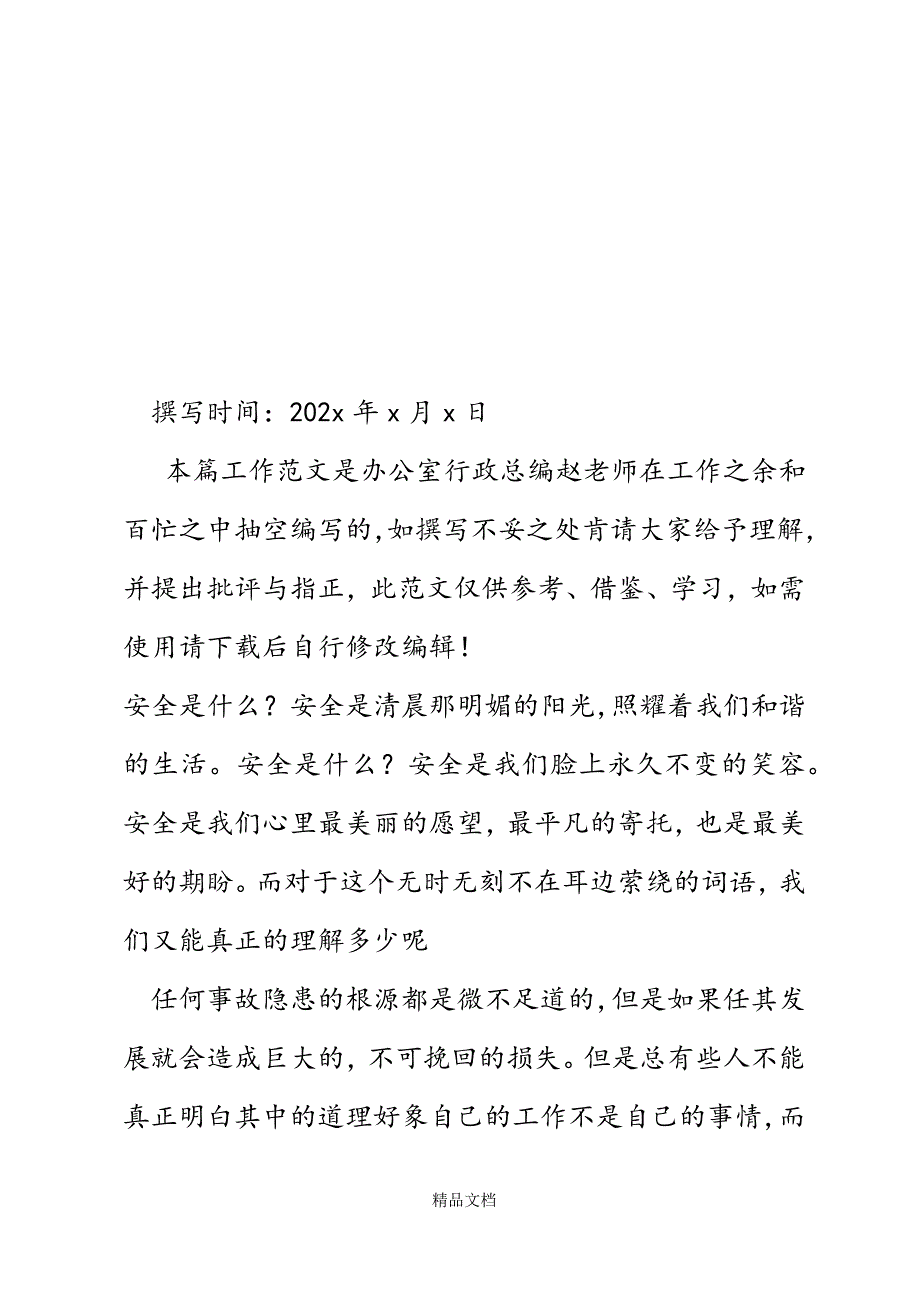 撰写时间：202x 年 x 月 x 日
本篇工作范文是办公室行政总编赵老师在工作之余和
百忙之中抽空编写的,如撰写不妥之处肯请大家给予理解,
并提出批评与指正，此范文仅供参考、借鉴、学习，如需
使用请下载后自行修改编辑！
安全是什么？安全是清晨那明媚的阳光,照耀着我们和谐
的生活。安全是什么？安全是我们脸上永久不变的笑容。
安全是我们心里最美丽的愿望，最平凡的寄托，也是最美
好的期盼。而对于这个无时无刻不在耳边萦绕的词语，我
们又能真正的理解多少呢
任何事故隐患的根源都是微不足道的,但是如果任其发
展就会造成巨大的，不可挽回的损失。但是总有些人不能
真正明白其中的道理好象自己的工作不是自己的事情,而
精品文档